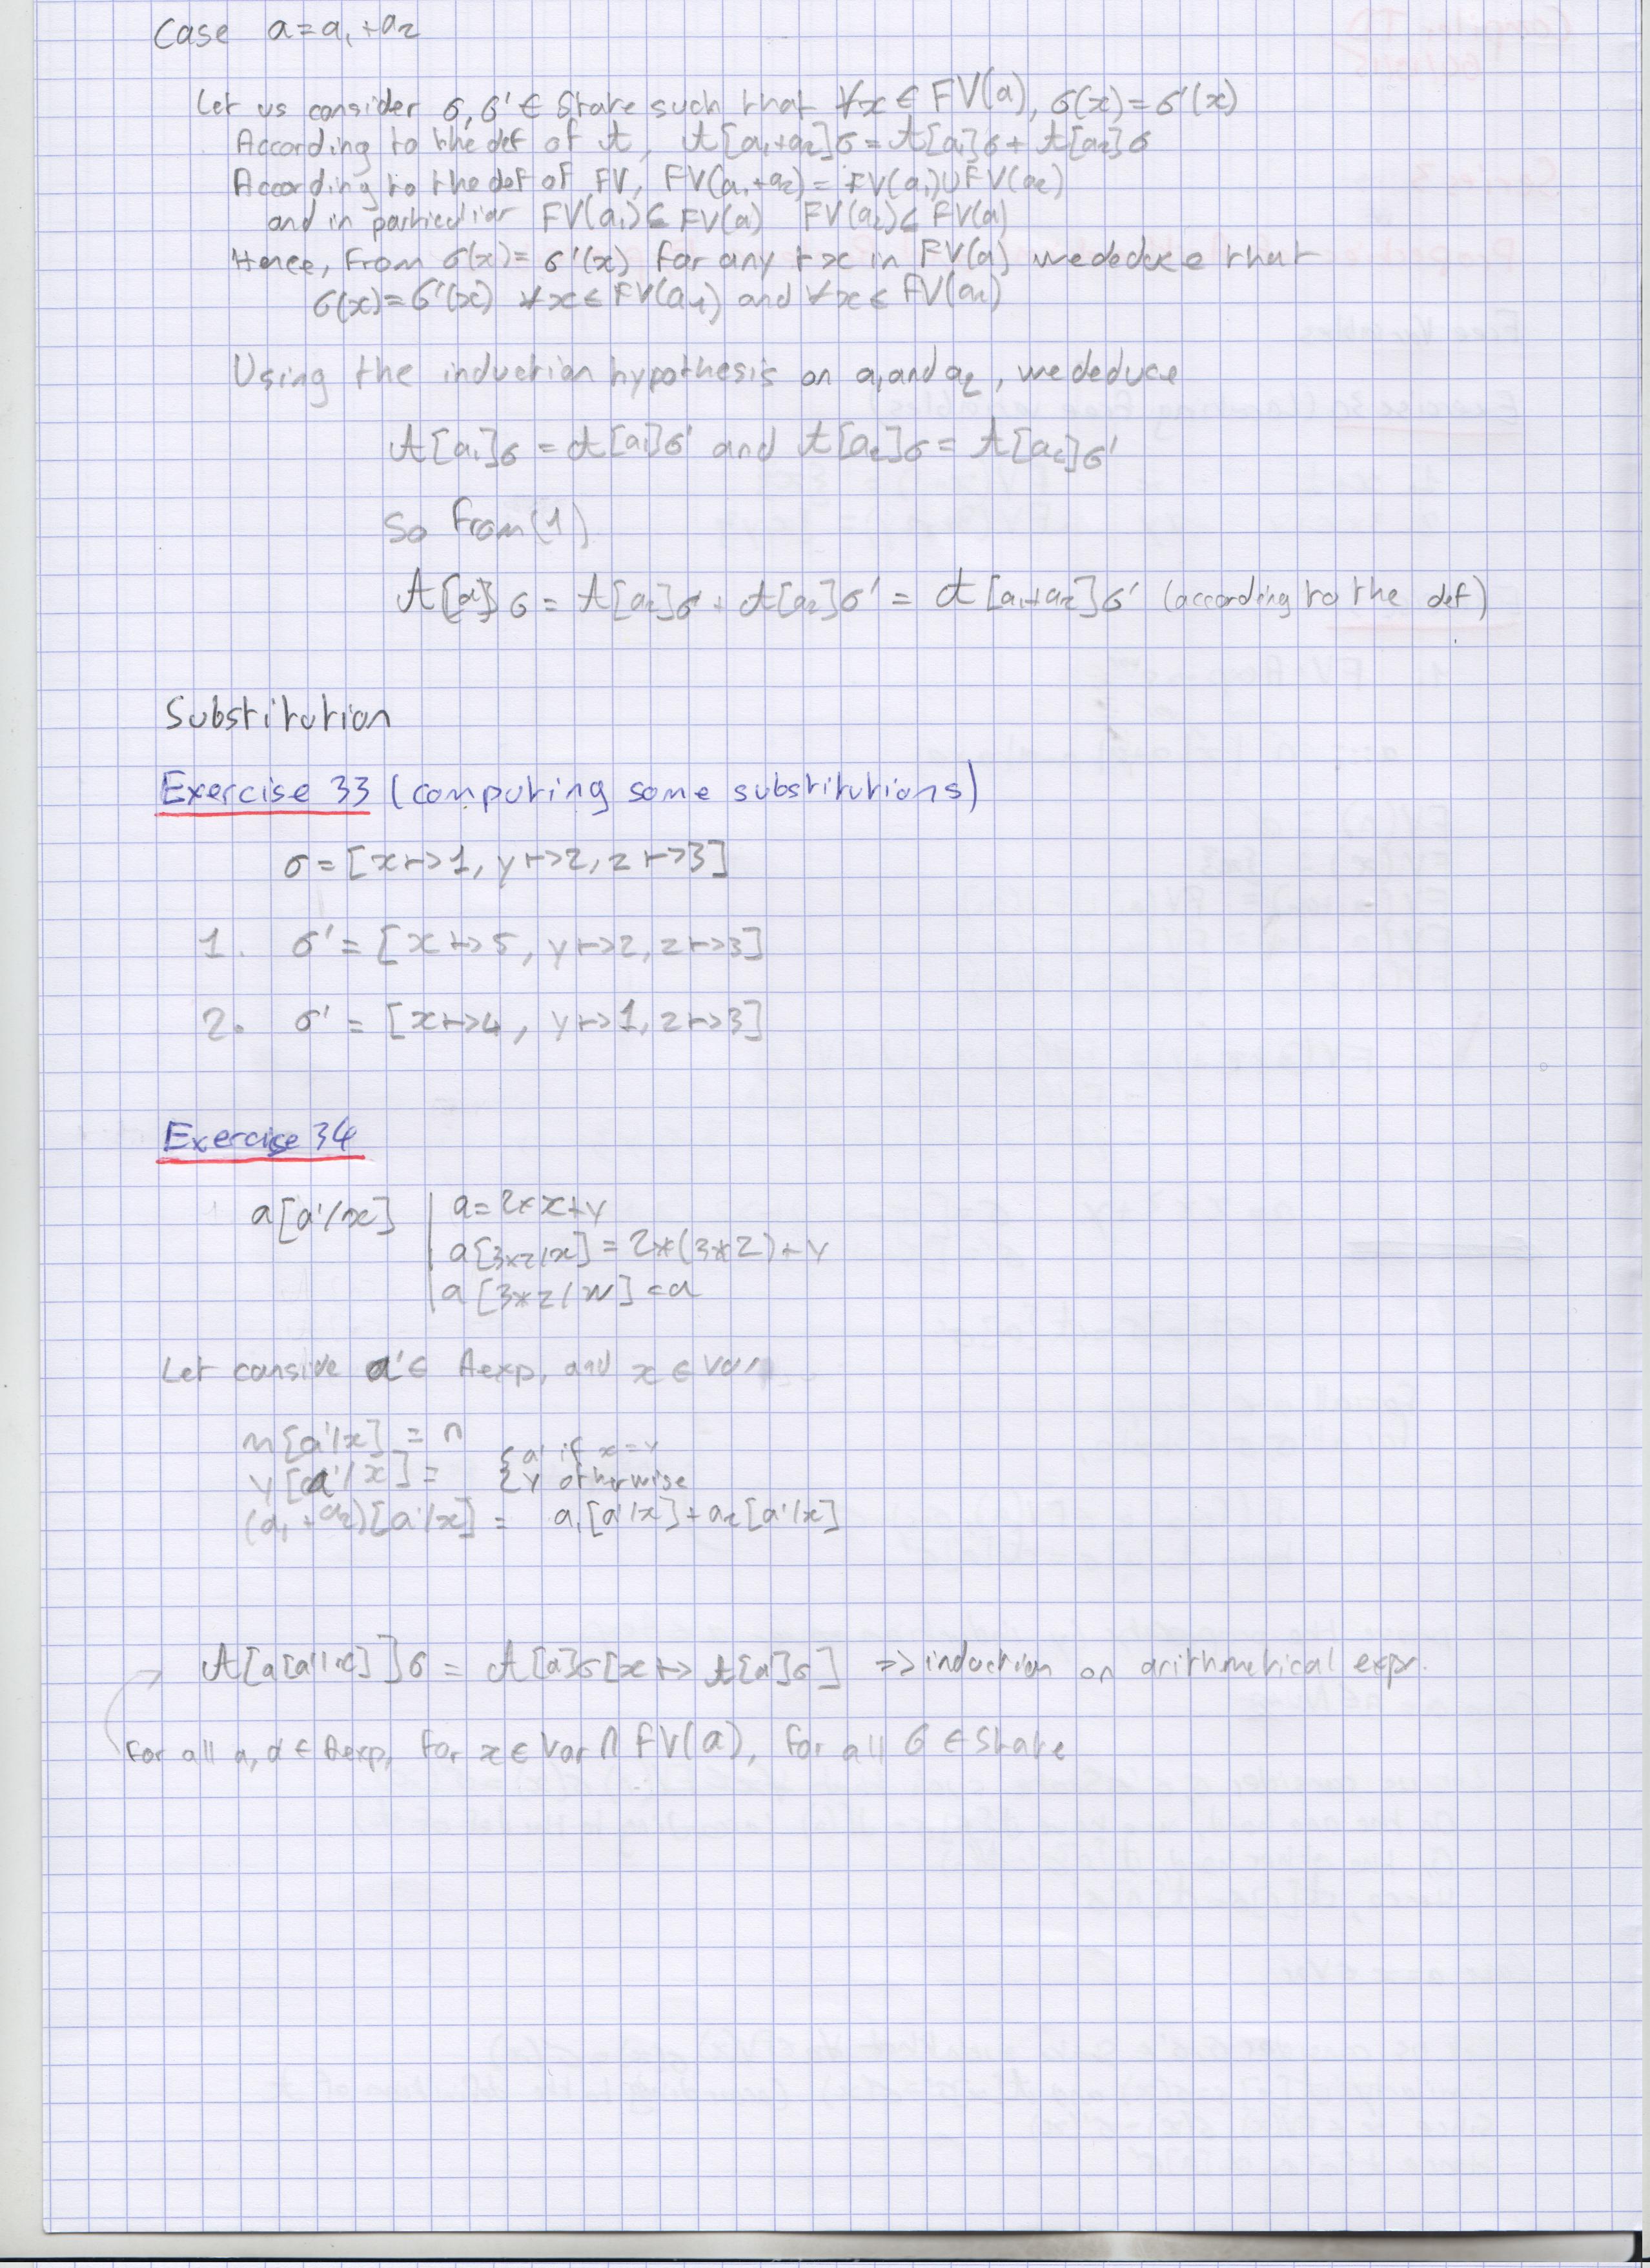 Case a = a₁ + a₂
Let us consider σ, σ' ∈ State such that ∀x ∈ FV(a), σ(x) = σ'(x)
According to the def of A, A[a₁+a₂]σ = A[a₁]σ + A[a₂]σ
According to the def of FV, FV(a₁+a₂) = FV(a₁) ∪ FV(a₂)
and in particular FV(a₁) ⊆ FV(a) FV(a₂) ⊆ FV(a)
Hence, from σ(x) = σ'(x) for any x in FV(a) we deduce that
σ(x) = σ'(x) ∀x ∈ FV(a₁) and ∀x ∈ FV(a₂)
Using the induction hypothesis on a₁ and a₂, we deduce
A[a₁]σ = A[a₁]σ' and A[a₂]σ = A[a₂]σ'
So from (1)
A[a]σ = A[a₂]σ' + A[a₂]σ' = A[a₁+a₂]σ' (according to the def)
Substitution
Exercise 33 (computing some substitutions)
σ = [x ↦ 1, y ↦ 2, z ↦ 3]
1. σ' = [x ↦ 5, y ↦ 2, z ↦ 3]
2. σ' = [x ↦ 4, y ↦ 1, z ↦ 3]
Exercise 34
a[a'/x] | a = 2*x+y
| a[3*z/x] = 2*(3*z)+y
| a[3*z/w] = a
Let conside a' ∈ Aexp, and x ∈ Var
n[a'/x] = n
y[a'/x] = { a' if x = y
{ y otherwise
(a₁ + a₂)[a'/x] = a₁[a'/x] + a₂[a'/x]
A[a[a'/x]]σ = A[a]σ[x ↦ A[a']σ] => induction on arithmetical expr.
For all a, a' ∈ Aexp, for x ∈ Var ∩ FV(a), for all σ ∈ State